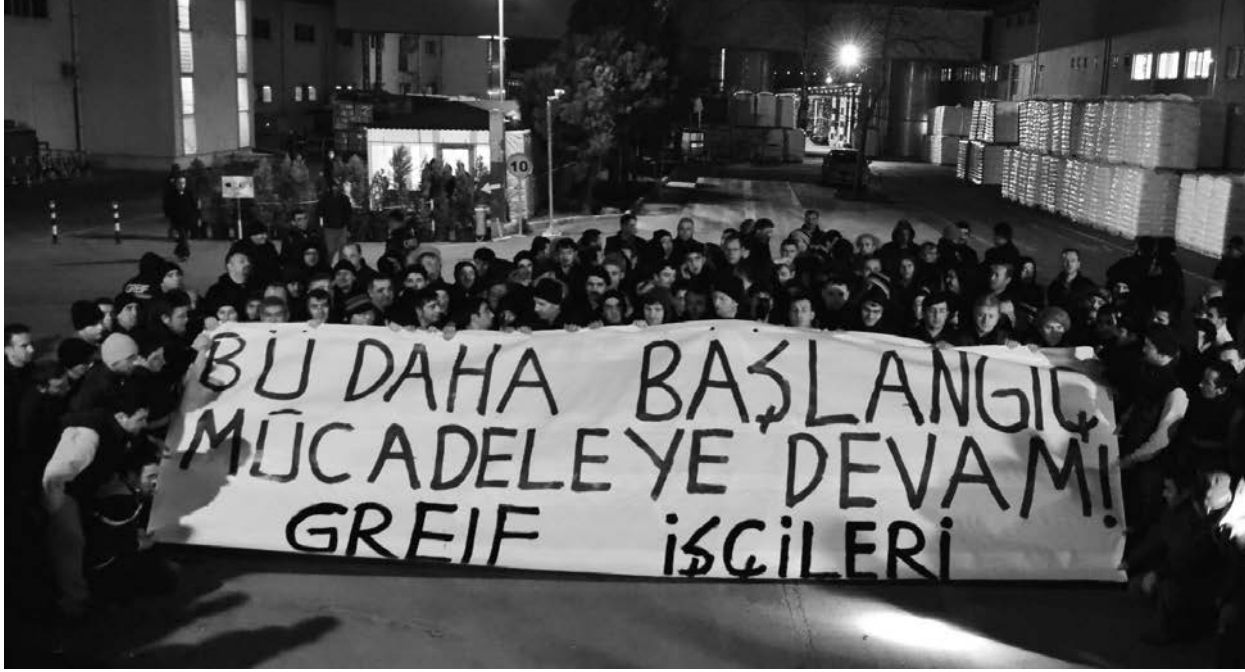 10
GREIF
BU DAHA BAŞLANGIÇ
MÜCADELEYE DEVAM!
GREIF İŞÇİLERİ